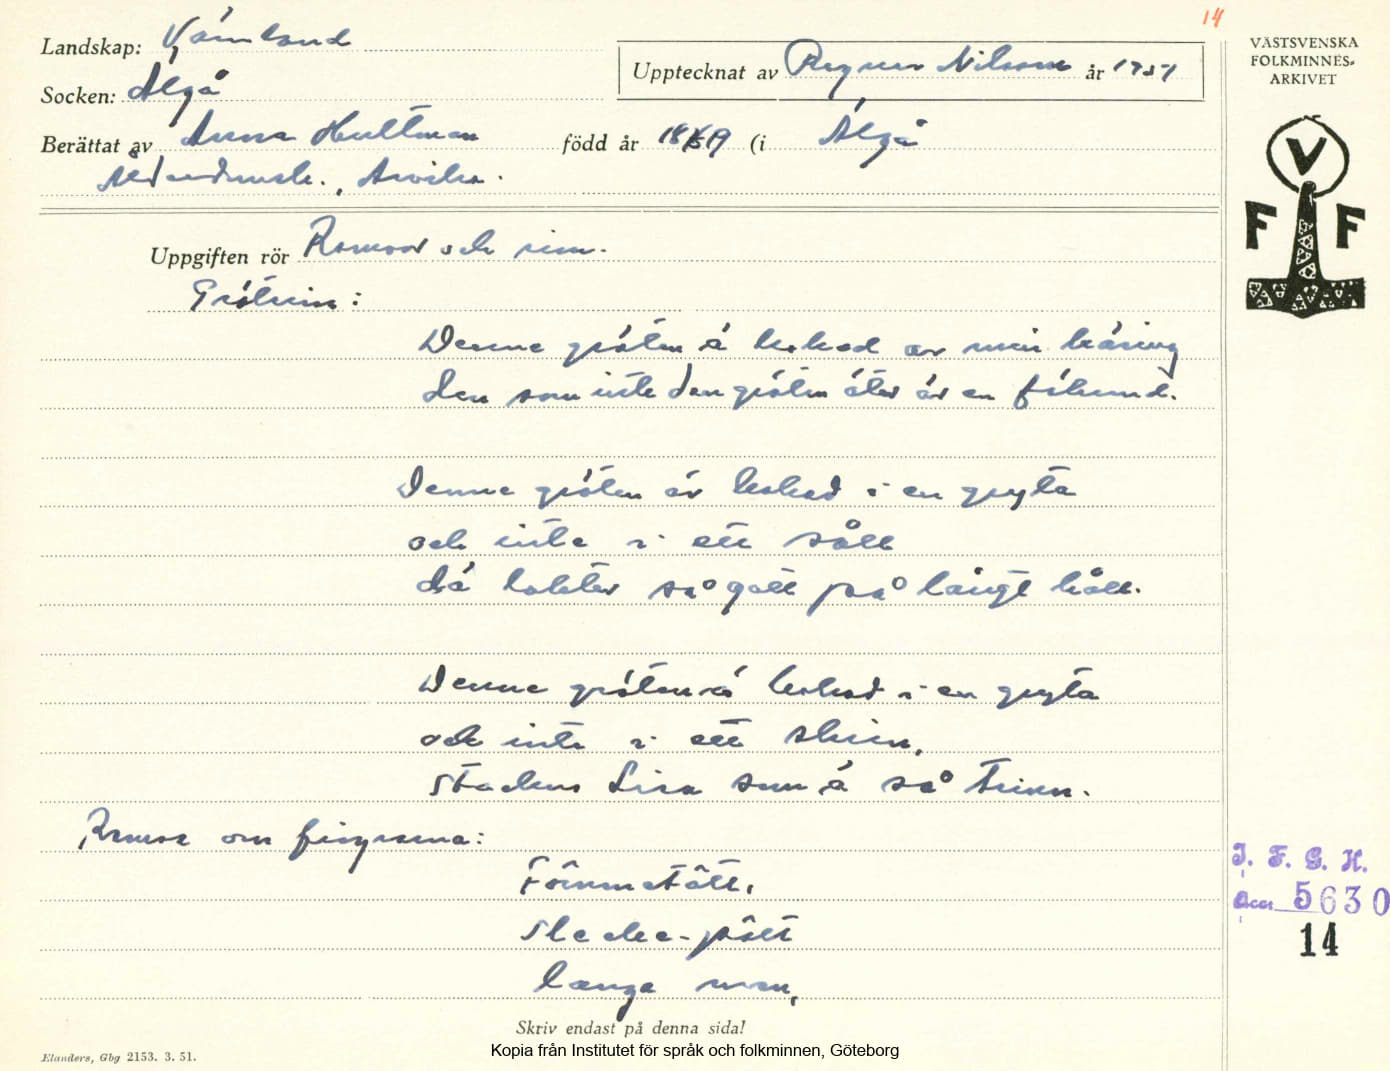 14
Landskap: Värmland
Upptecknat av Ragnar Nilsson år 1951
VÄSTSVENSKA
FOLKMINNES-
ARKIVET
Socken: Älgå
Berättat av Anna Hultman född år 18 (i Älgå
Arvika.
V
F F
Uppgiften rör Ramsor och rim.
Grötrim:
Denne gröten ä kokad av min
den som inte den gröten äter är en
Denne gröten är kokad i en gryta
och inte i ett såll
dä luktar så gott på långt håll.
Denne gröten ä kokad i en gryta
och inte i ett skrin,
Lisa som ä så
Ramsa om fingrarna:
Tömmetått,
Slecke-pått
lange man,
J. F. G. H.
Acc. 5630
14
Skriv endast på denna sida!
Elanders, Gbg 2153. 3. 51.
Kopia från Institutet för språk och folkminnen, Göteborg